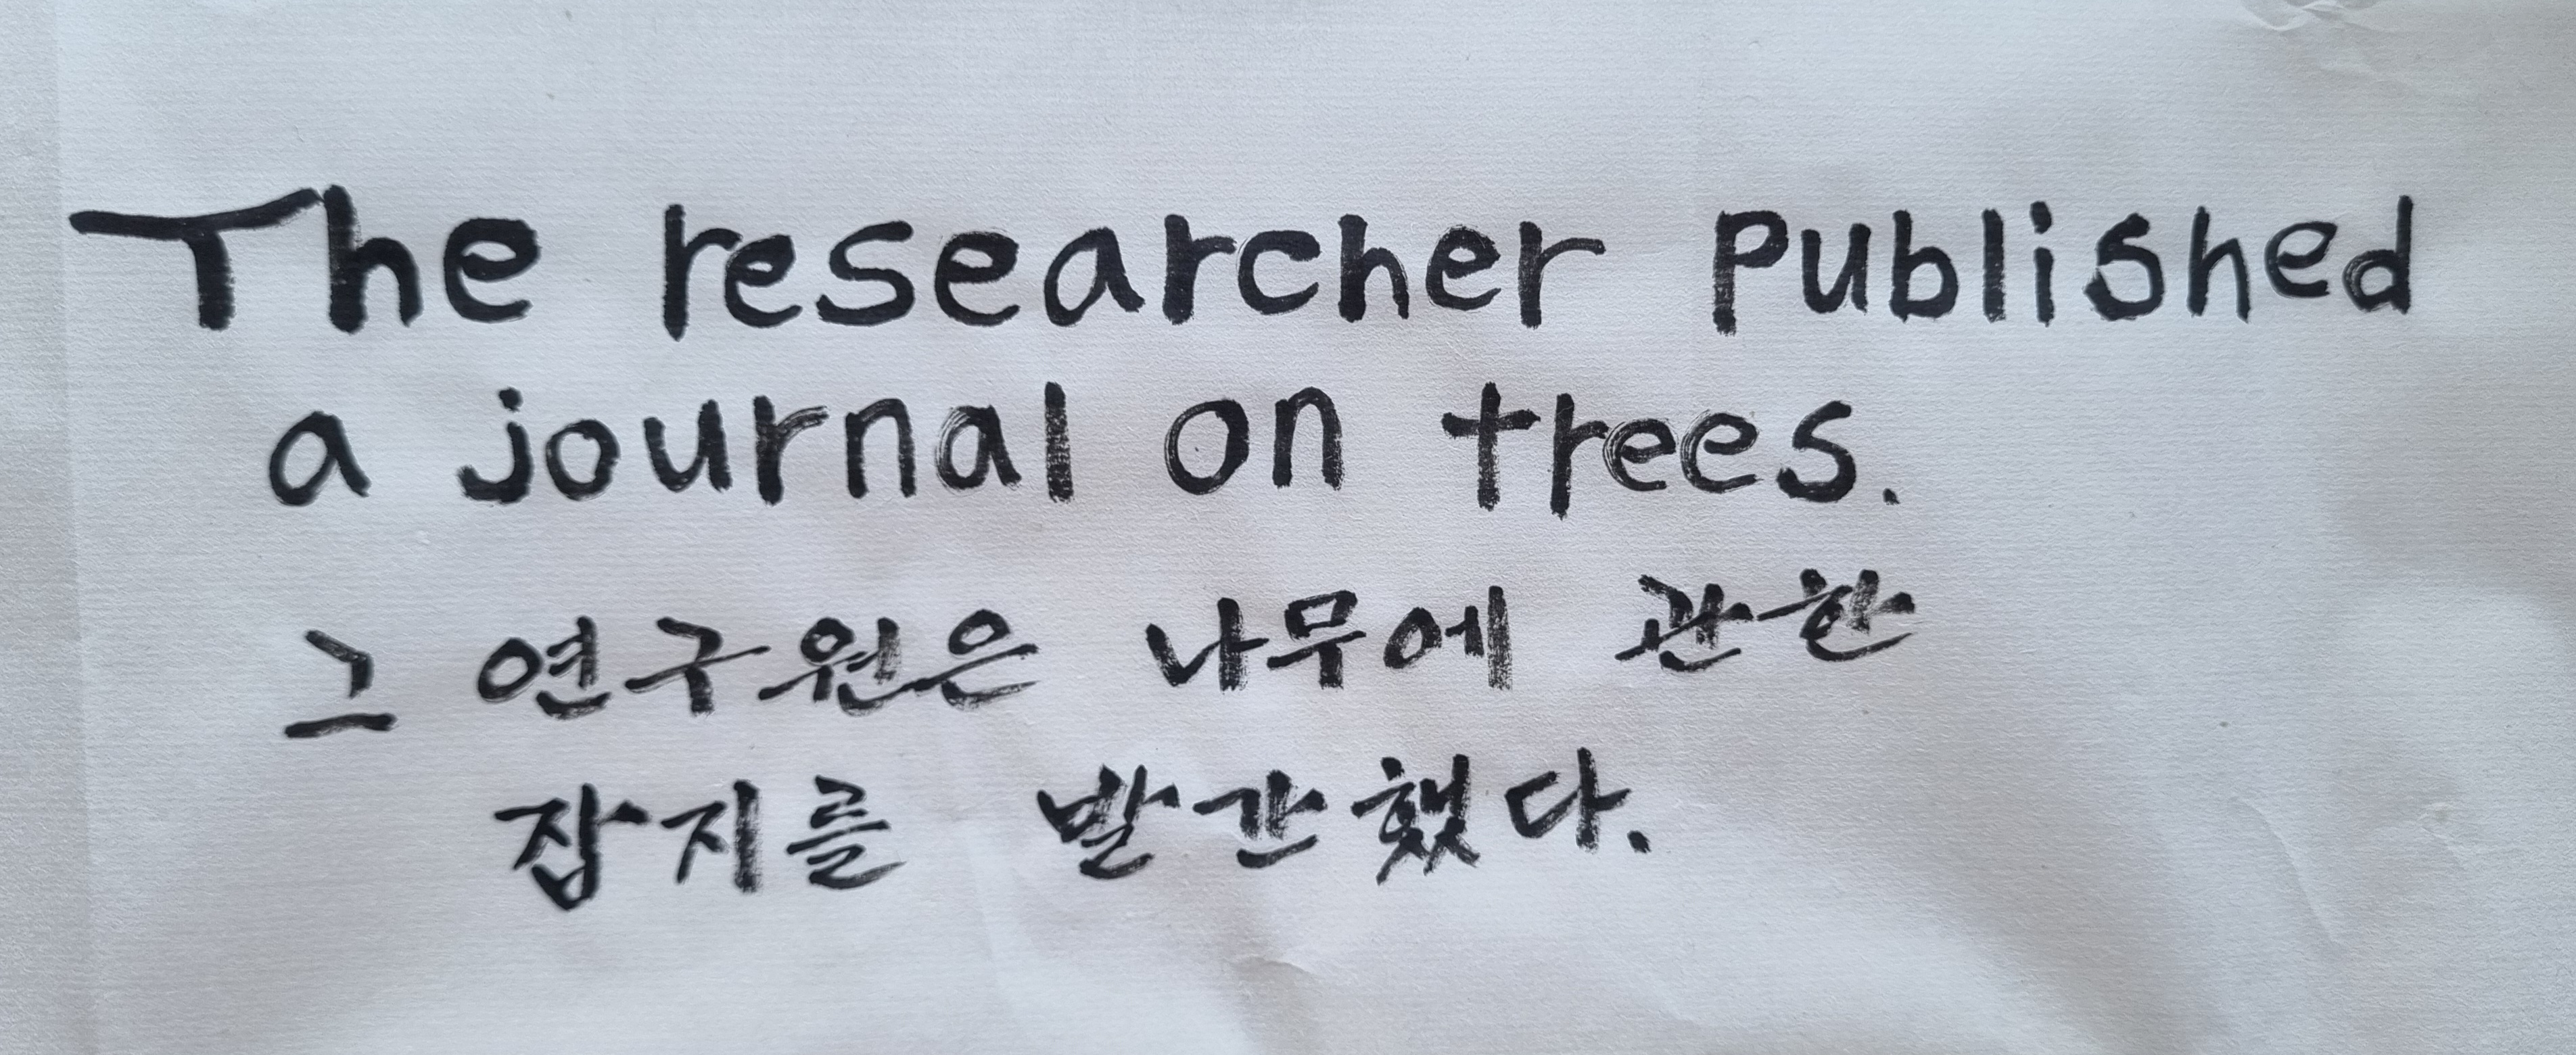 The researcher published
a journal on trees.
그 연구원은 나무에 관한
잡지를 발간했다.